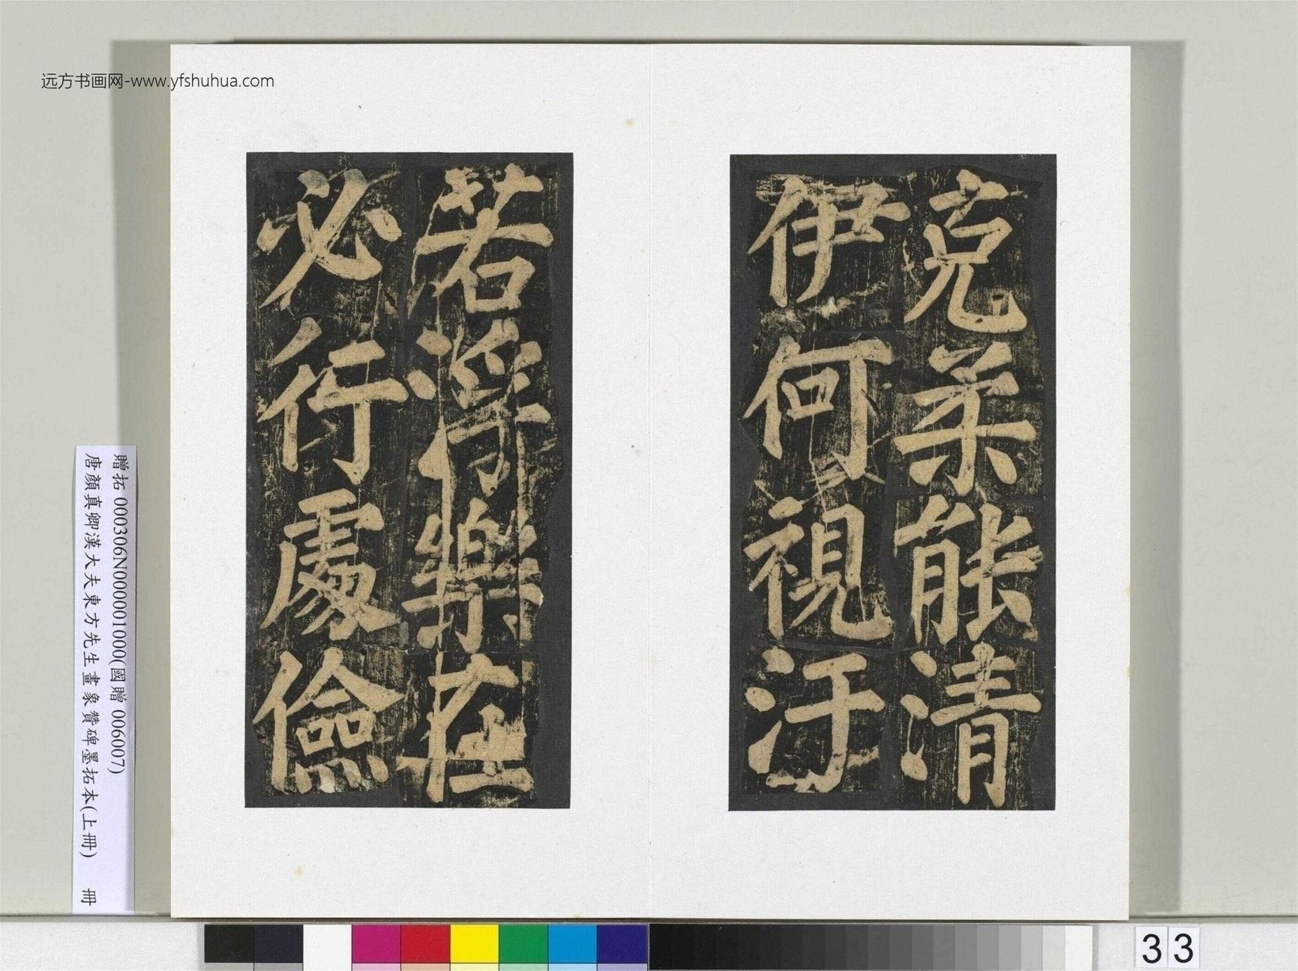 远方书画网-www.yfshuhua.com
克柔能清
伊何視汙
若浮樂在
必行處儉
贈拓 000306N000001000(國贈 006007)
唐顏真卿漢大夫東方先生畫象贊碑墨拓本(上冊) 冊
33